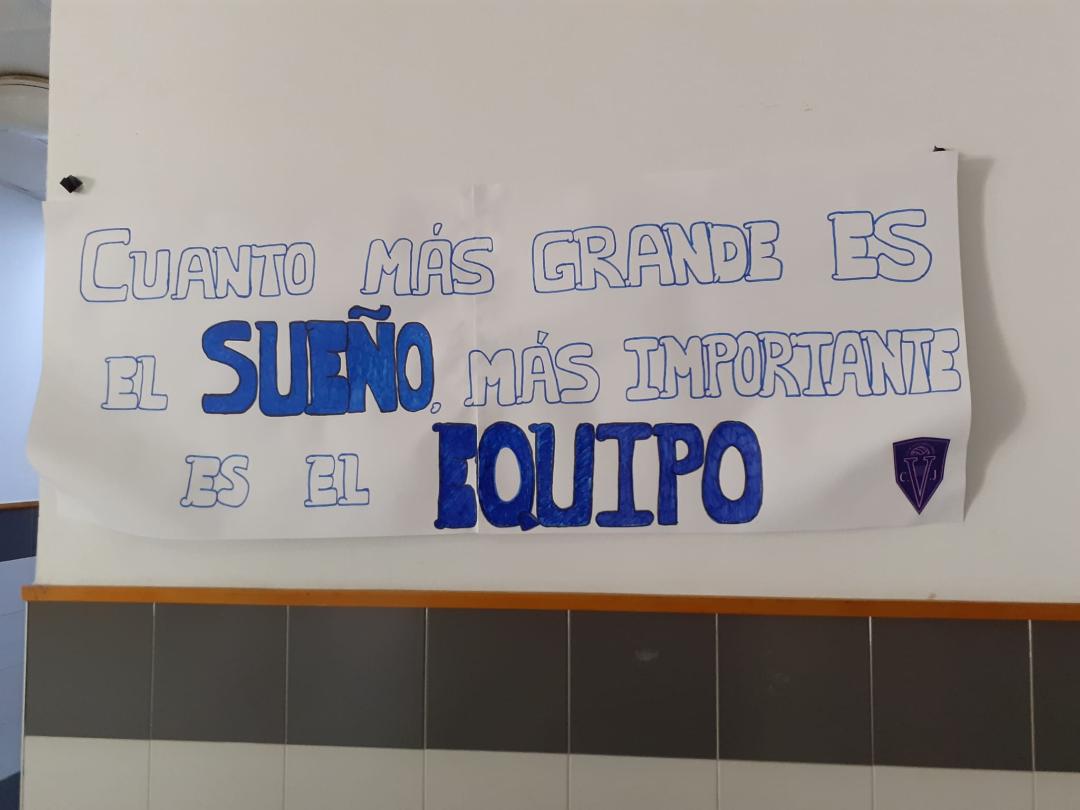 CUANTO MÁS GRANDE ES
EL SUEÑO, MÁS IMPORTANTE
ES EL EQUIPO
C V J